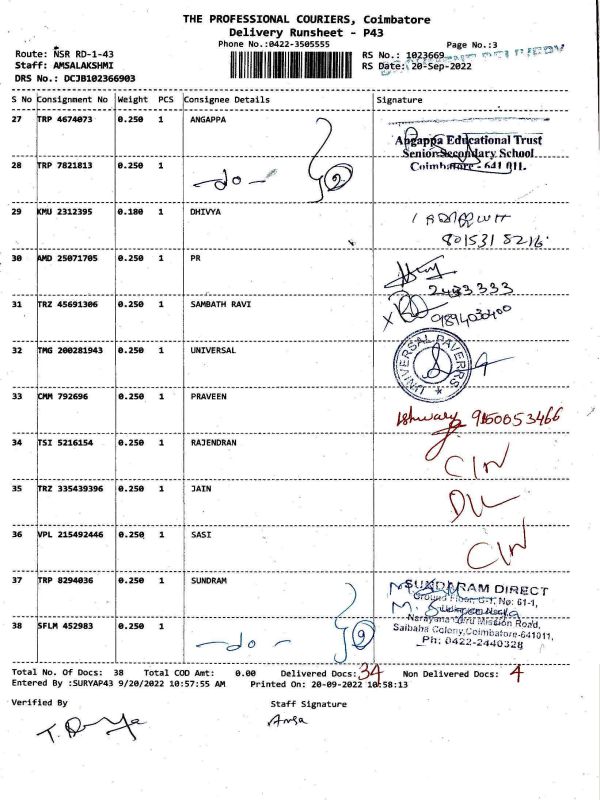 THE PROFESSIONAL COURIERS, Coimbatore
Delivery Runsheet - P43
Phone No.:0422-3505555
Page No.:3
Route: NSR RD-1-43
RS No.: 1023669
Staff: AMSALAKSHMI
RS Date: 20-Sep-2022
DRS No.: DCJB102366903
S No Consignment No Weight PCS Consignee Details Signature
27 TRP 4674073 0.250 1 ANGAPPA
Angappa Educational Trust
Senior Secondary School
Coimbatore - 641 011.
28 TRP 7821813 0.250 1
-do- 2
29 KMU 2312395 0.180 1 DHIVYA
801531 8216
30 AMD 25071705 0.250 1 PR
2433333
31 TRZ 45691306 0.250 1 SAMBATH RAVI
9894030400
32 TMG 200281943 0.250 1 UNIVERSAL
UNIVERSAL PAVERRS
33 CMM 792696 0.250 1 PRAVEEN
Ishwarya 9150053466
34 TSI 5216154 0.250 1 RAJENDRAN
C/N
35 TRZ 335439396 0.250 1 JAIN
DL
36 VPL 215492446 0.250 1 SASI
C/N
37 TRP 8294036 0.250 1 SUNDRAM
SUNDARAM DIRECT
Ground Floor, G-1, No: 61-1,
Narayana Guru Mission Road,
Saibaba Colony, Coimbatore-641011,
Ph: 0422-2440328
38 SFLM 452983 0.250 1
-do- 2
Total No. Of Docs: 38 Total COD Amt: 0.00 Delivered Docs: 34 Non Delivered Docs: 4
Entered By :SURYAP43 9/20/2022 10:57:55 AM Printed On: 20-09-2022 10:58:13
Verified By
Staff Signature
Amsa